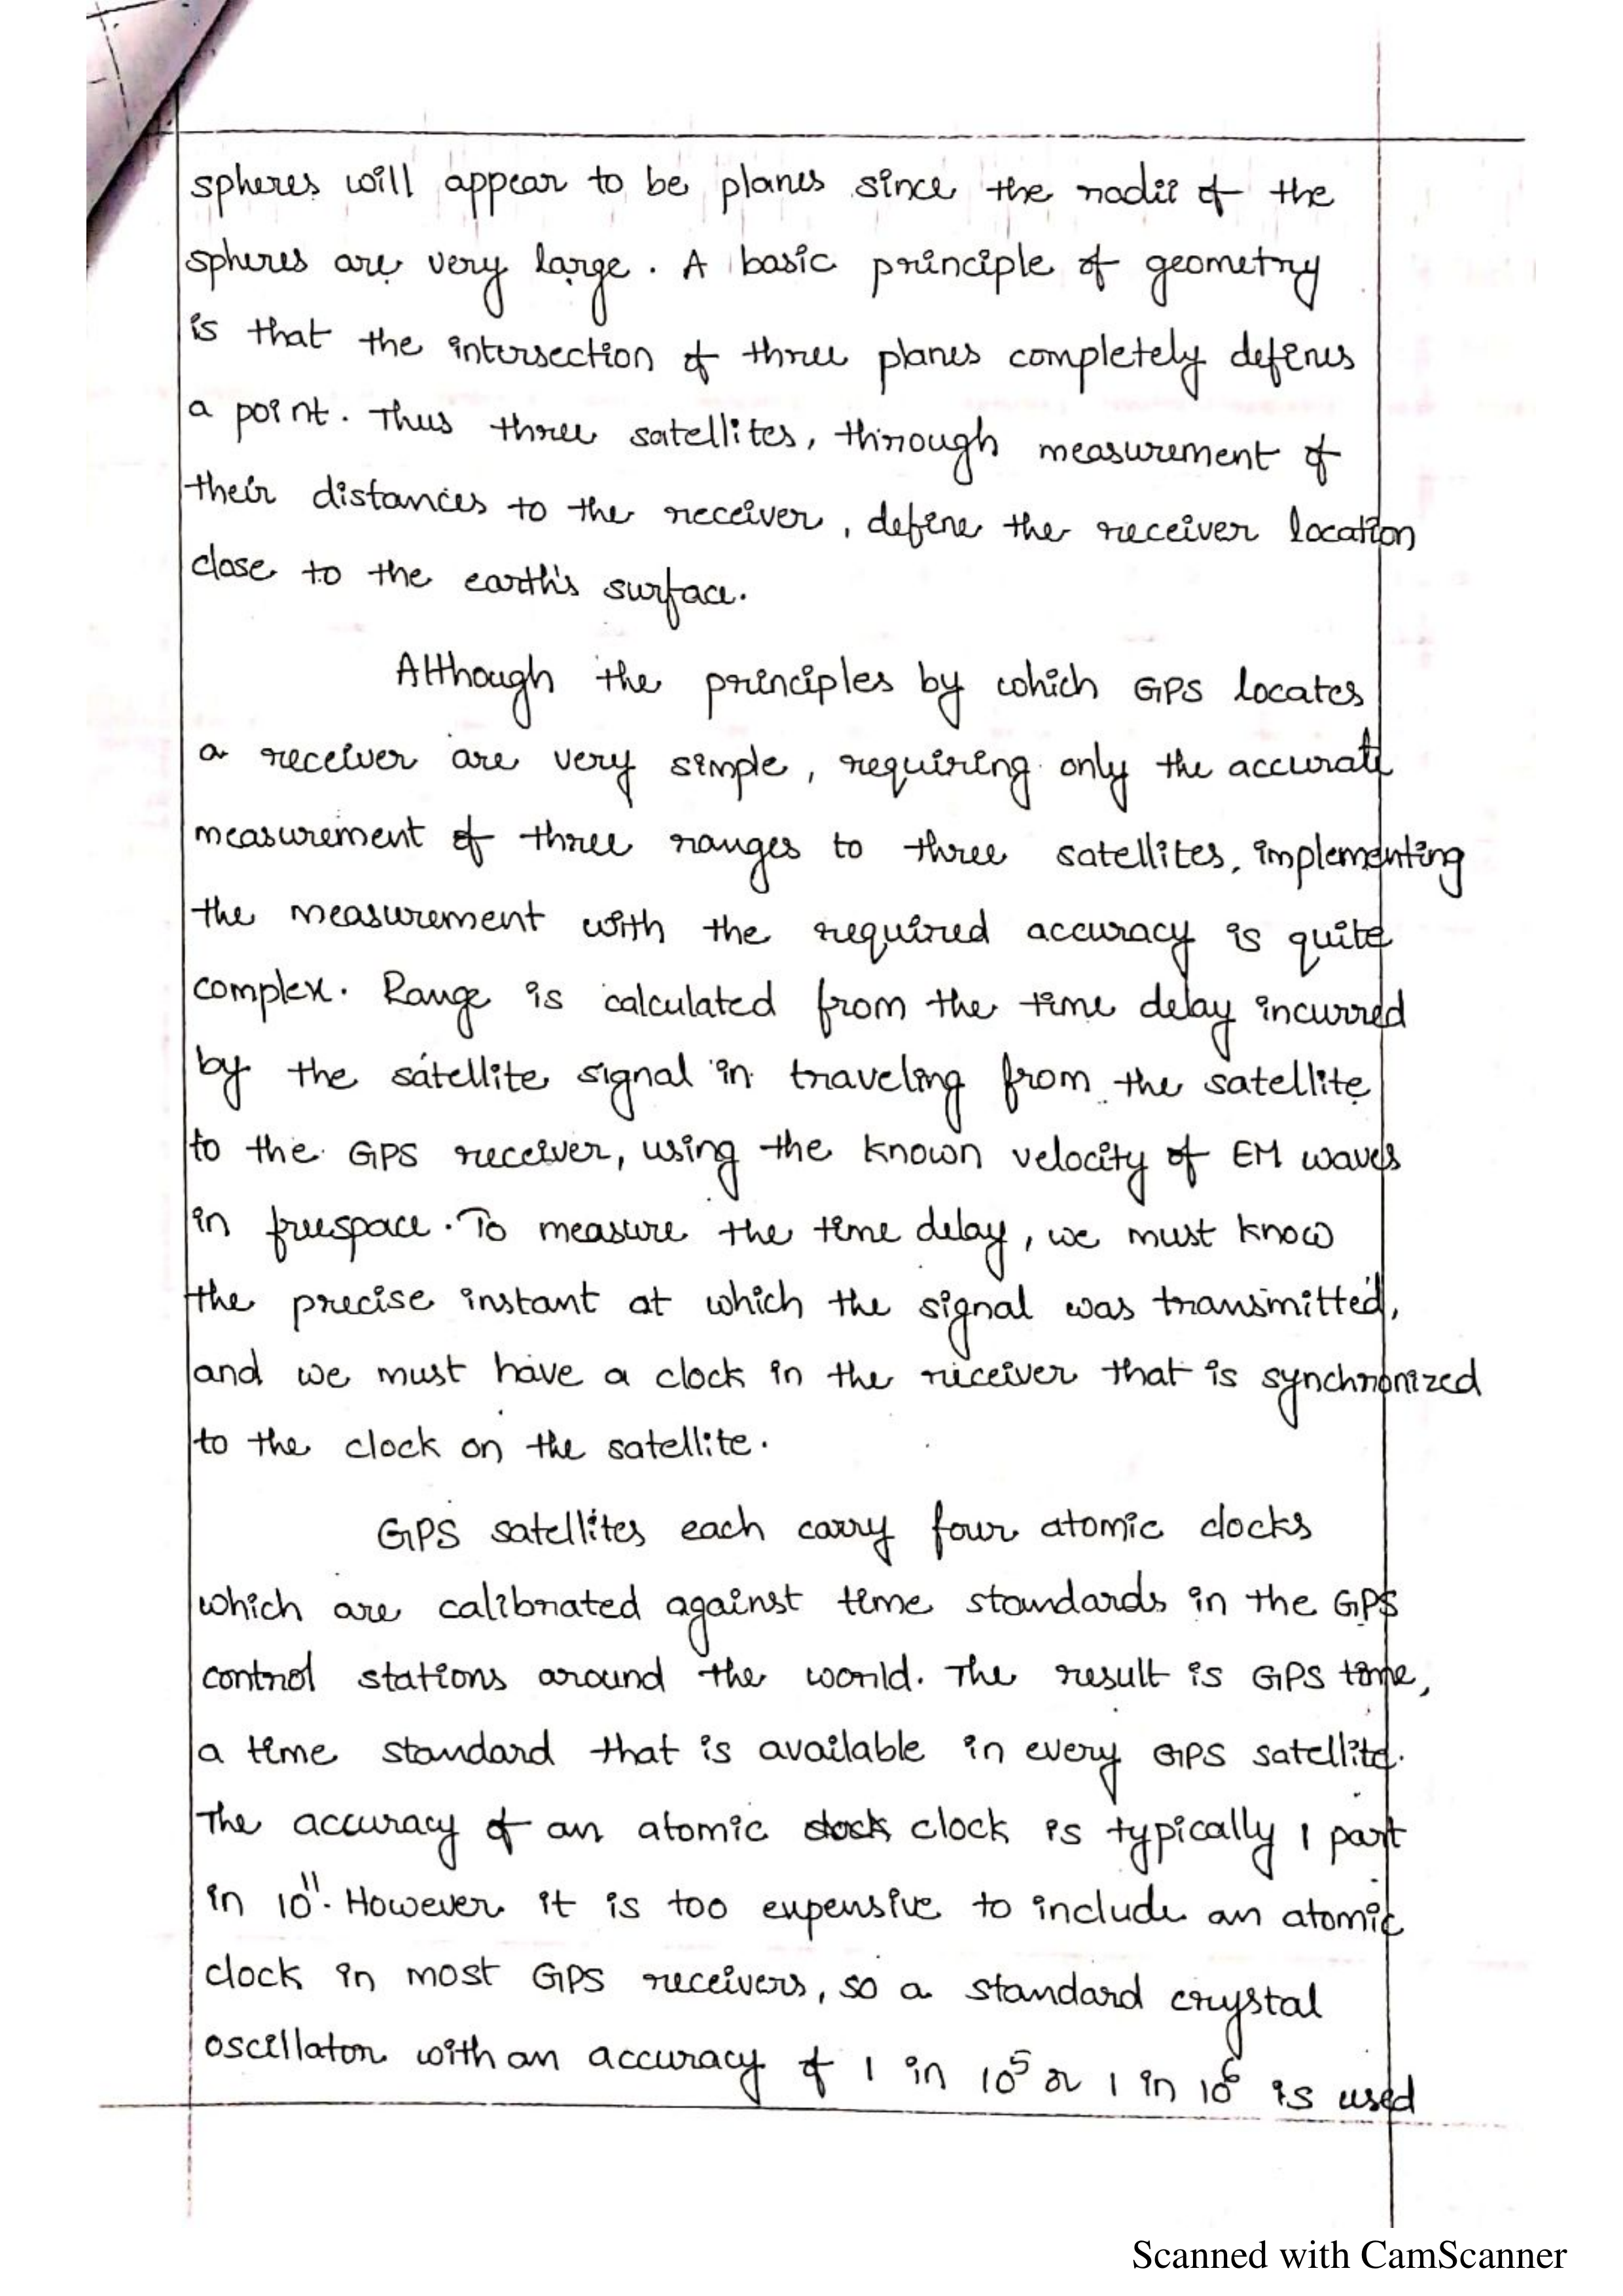 spheres will appear to be planes since the radii of the
spheres are very large. A basic principle of geometry
is that the intersection of three planes completely defines
a point. Thus three satellites, through measurement of
their distances to the receiver, define the receiver location
close to the earth's surface.
Although the principles by which GPS locates
a receiver are very simple, requiring only the accurate
measurement of three ranges to three satellites, implementing
the measurement with the required accuracy is quite
complex. Range is calculated from the time delay incurred
by the satellite signal in traveling from the satellite
to the GPS receiver, using the known velocity of EM waves
in freespace. To measure the time delay, we must know
the precise instant at which the signal was transmitted,
and we must have a clock in the receiver that is synchronized
to the clock on the satellite.
GPS satellites each carry four atomic clocks
which are calibrated against time standards in the GPS
control stations around the world. The result is GPS time,
a time standard that is available in every GPS satellite.
The accuracy of an atomic clock clock is typically 1 part
in 10¹¹. However it is too expensive to include an atomic
clock in most GPS receivers, so a standard crystal
oscillator with an accuracy of 1 in 10⁵ or 1 in 10⁶ is used
Scanned with CamScanner